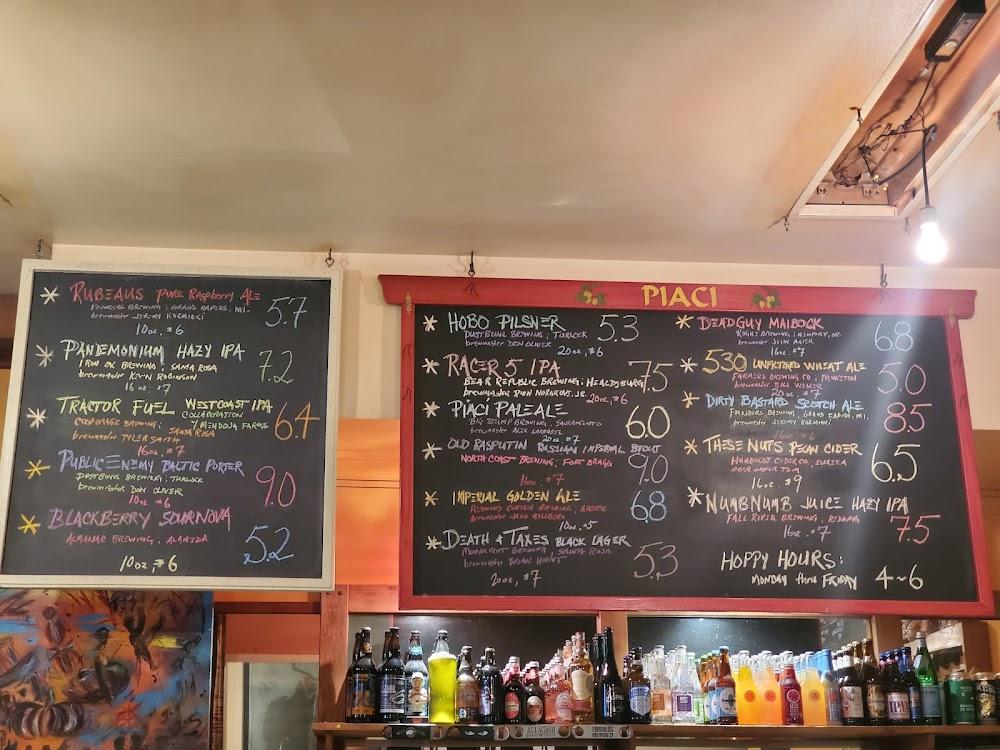 RUBEAUS PURE RASPBERRY ALE 5.7
FOUNDERS BREWING; GRAND RAPIDS, MI.
brewmaster JEREMY KOSMICKI
10oz, $6
PANDEMONIUM HAZY IPA 7.2
IRON OX BREWING; SANTA ROSA
brewmaster KEVIN ROBINSON
16oz $7
TRACTOR FUEL WESTCOAST IPA 6.4
COLLABORATION
BREWING; MENDOJA FARMS
SANTA ROSA
brewmaster TYLER SMITH
16oz $7
PUBLIC ENEMY BALTIC PORTER 9.0
DUSTBOWL BREWING; TURLOCK
brewmaster DON OLIVER
10oz $6
BLACKBERRY SOURNOVA 5.2
ALMANAC BREWING; ALAMEDA
10oz, $6
PIACI
HOBO PILSNER 5.3
DUSTBOWL BREWING; TURLOCK
brewmaster DON OLIVER
20oz, $6
RACER 5 IPA 7.5
BEAR REPUBLIC BREWING; HEALDSBURG
brewmaster RON NORGROVE, JR.
20oz, $6
PIACI PALE ALE 6.0
BIG STUMP BREWING; SACRAMENTO
brewmaster ALEX
20oz $7
OLD RASPUTIN RUSSIAN IMPERIAL STOUT 9.0
NORTH COAST BREWING; FORT BRAGG
16oz, $7
IMPERIAL GOLDEN ALE 6.8
REDWOOD CURTAIN BREWING; ARCATA
brewmaster
10oz, $5
DEATH & TAXES BLACK LAGER 5.3
MOONLIGHT BREWING; SANTA ROSA
brewmaster BRIAN HUNT
20oz, $7
DEAD GUY MAIBOCK 6.8
ROGUE BREWING; NEWPORT, OR.
brewmaster JOHN MAIER
16oz $7
530 UNFILTERED WHEAT ALE 5.0
FARMERS BREWING CO; PRINCETON
brewmaster BILL WEMER
20oz $7
DIRTY BASTARD SCOTCH ALE 8.5
FOUNDERS BREWING; GRAND RAPIDS, MI.
brewmaster JEREMY KOSMICKI
16oz $6
THESE NUTS PECAN CIDER 6.5
HUMBOLDT CIDER CO, EUREKA
cider maker TOM
16oz $9
NUMBNUMB JUICE HAZY IPA 7.5
FALL RIVER BREWING; REDDING
16oz $7
HOPPY HOURS:
MONDAY thru FRIDAY 4~6
ALLAGASH
FOUNDERS
BREWING CO